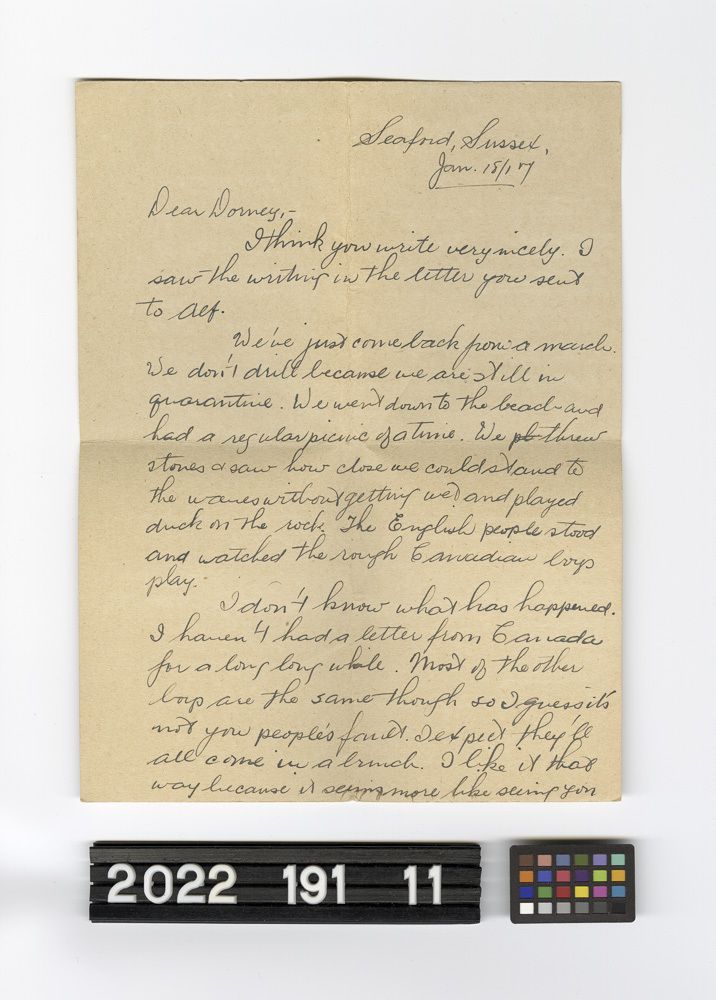 Seaford, Sussex,
Jan. 18/17
Dear Dorney,-
I think you write very nicely. I
saw the writing in the letter you sent
to Alf.
We've just come back from a march.
We don't drill because we are still in
quarantine. We went down to the beach and
had a regular picnic of a time. We threw
stones & saw how close we could stand to
the waves without getting wet and played
duck on the rock. The English people stood
and watched the rough Canadian boys
play.
I don't know what has happened.
I haven't had a letter from Canada
for a long long while. Most of the other
boys are the same though so I guess it's
not you people's fault. I expect they'll
all come in a bunch. I like it that
way because it seems more like seeing you
2022 191 11